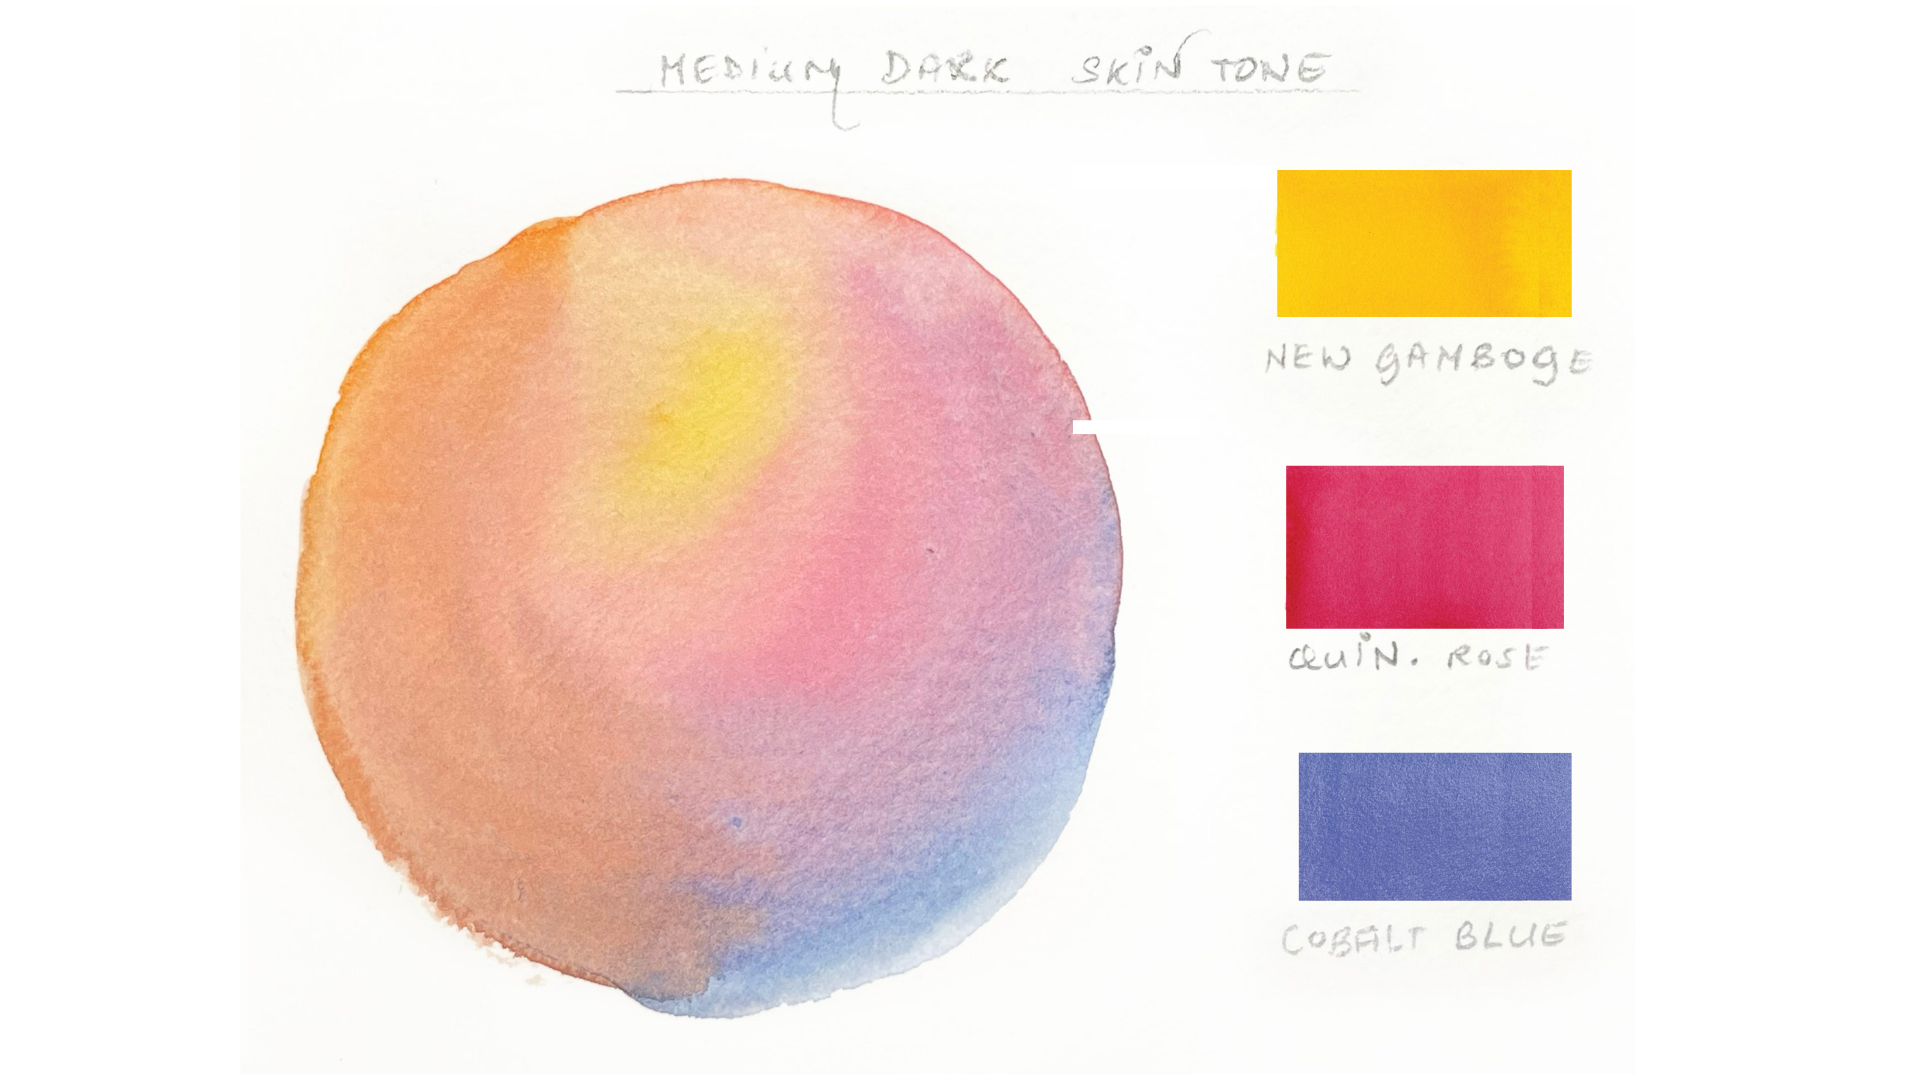 MEDIUM DARK SKIN TONE
NEW GAMBOGE
QUIN. ROSE
COBALT BLUE